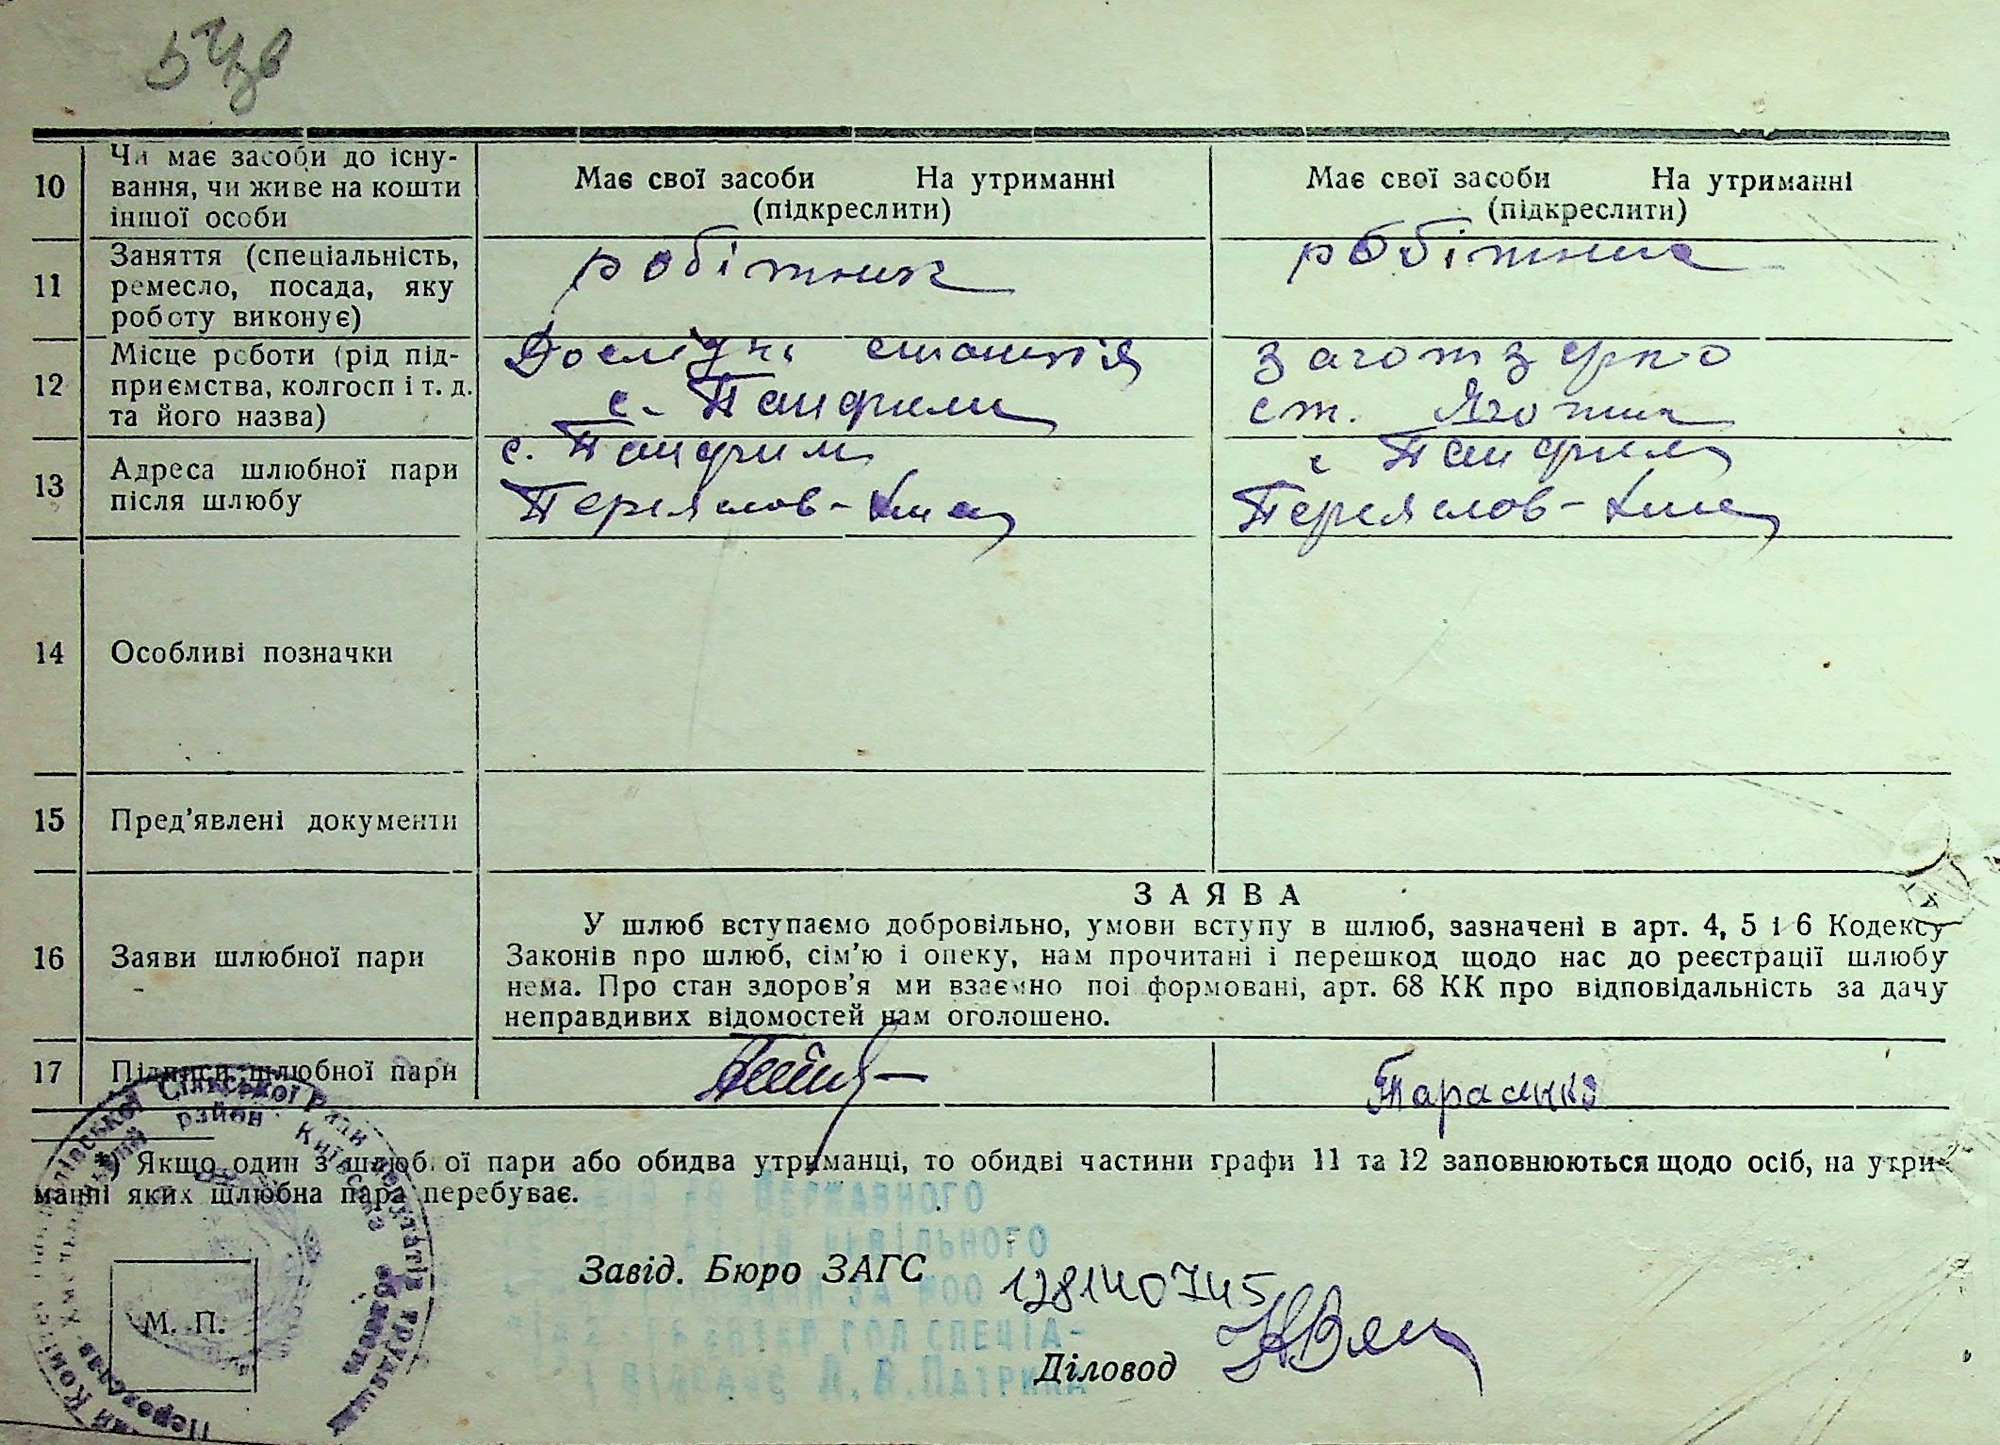 10 Чи має засоби до існу-
вання, чи живе на кошти
іншої особи
Має свої засоби На утриманні
(підкреслити)
Має свої засоби На утриманні
(підкреслити)
11 Заняття (спеціальність,
ремесло, посада, яку
роботу виконує)
робітник
робітниця
12 Місце роботи (рід під-
приємства, колгосп і т. д.
та його назва)
Дослідна станція
с. Панфили
заготзерно
ст. Яготин
13 Адреса шлюбної пари
після шлюбу
с. Панфили
Переяслов-Хме
с Панфили
Переяслов-Хме
14 Особливі позначки
15 Пред'явлені документи
16 Заяви шлюбної пари
ЗАЯВА
У шлюб вступаємо добровільно, умови вступу в шлюб, зазначені в арт. 4, 5 і 6 Кодексу
Законів про шлюб, сім'ю і опеку, нам прочитані і перешкод щодо нас до реєстрації шлюбу
нема. Про стан здоров'я ми взаємно поінформовані, арт. 68 КК про відповідальність за дачу
неправдивих відомостей нам оголошено.
17 Підписи шлюбної пари
Тарасенко
*) Якщо один з шлюбної пари або обидва утриманці, то обидві частини графи 11 та 12 заповнюються щодо осіб, на утри-
манні яких шлюбна пара перебуває.
Сільської Ради депутатів трудящих
район Київська область
державного
цивільного
Л. В. Патрика
М. П.
Завід. Бюро ЗАГС
128140745
Діловод